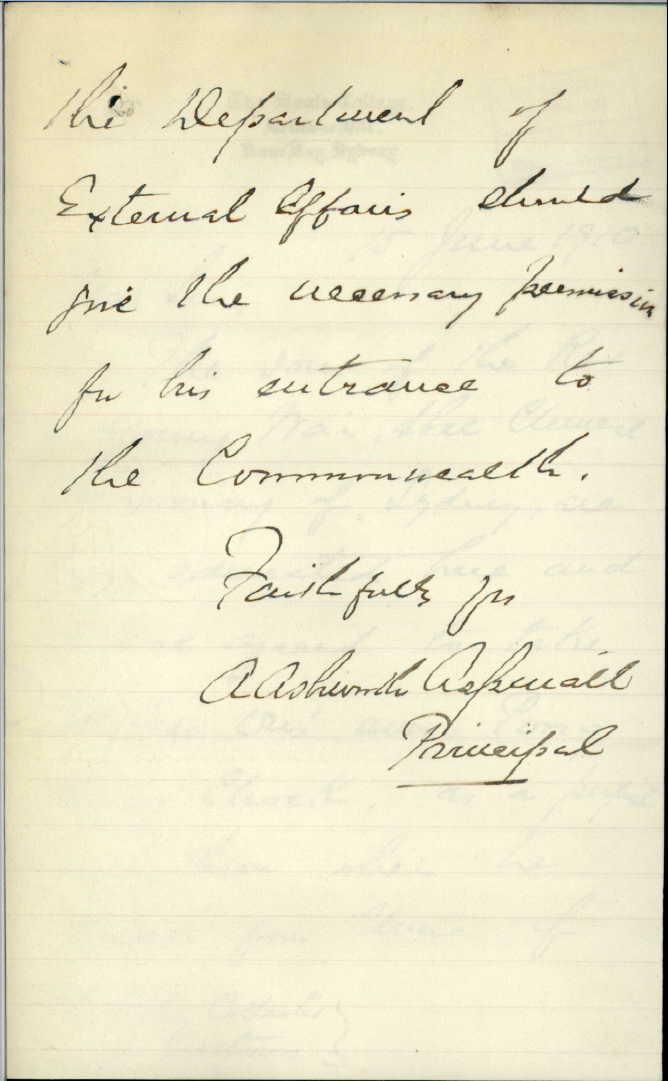 the Department of
External Affairs should
give the necessary permission
for his entrance to
the Commonwealth.
Faithfully yrs
A Ashworth Aspinall
Principal